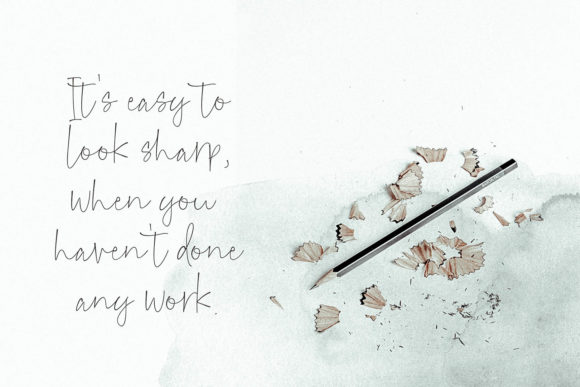 It's easy to
look sharp,
when you
haven't done
any work.